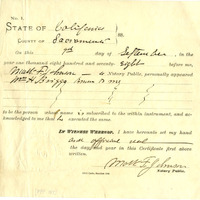 No. 1.
STATE OF California
COUNTY OF Sacramento ss.
On this 7th day of September in the
year one thousand eight hundred and seventy eight before me,
Matt F. Johnson a Notary Public, personally appeared
Wm H. Briggs known to me
to be the person whose name is subscribed to the within instrument, and
acknowledged to me that he executed the same.
IN WITNESS WHEREOF, I have hereunto set my hand
and official seal
the day and year in this Certificate first above
written.
Matt F. Johnson
Notary Public.